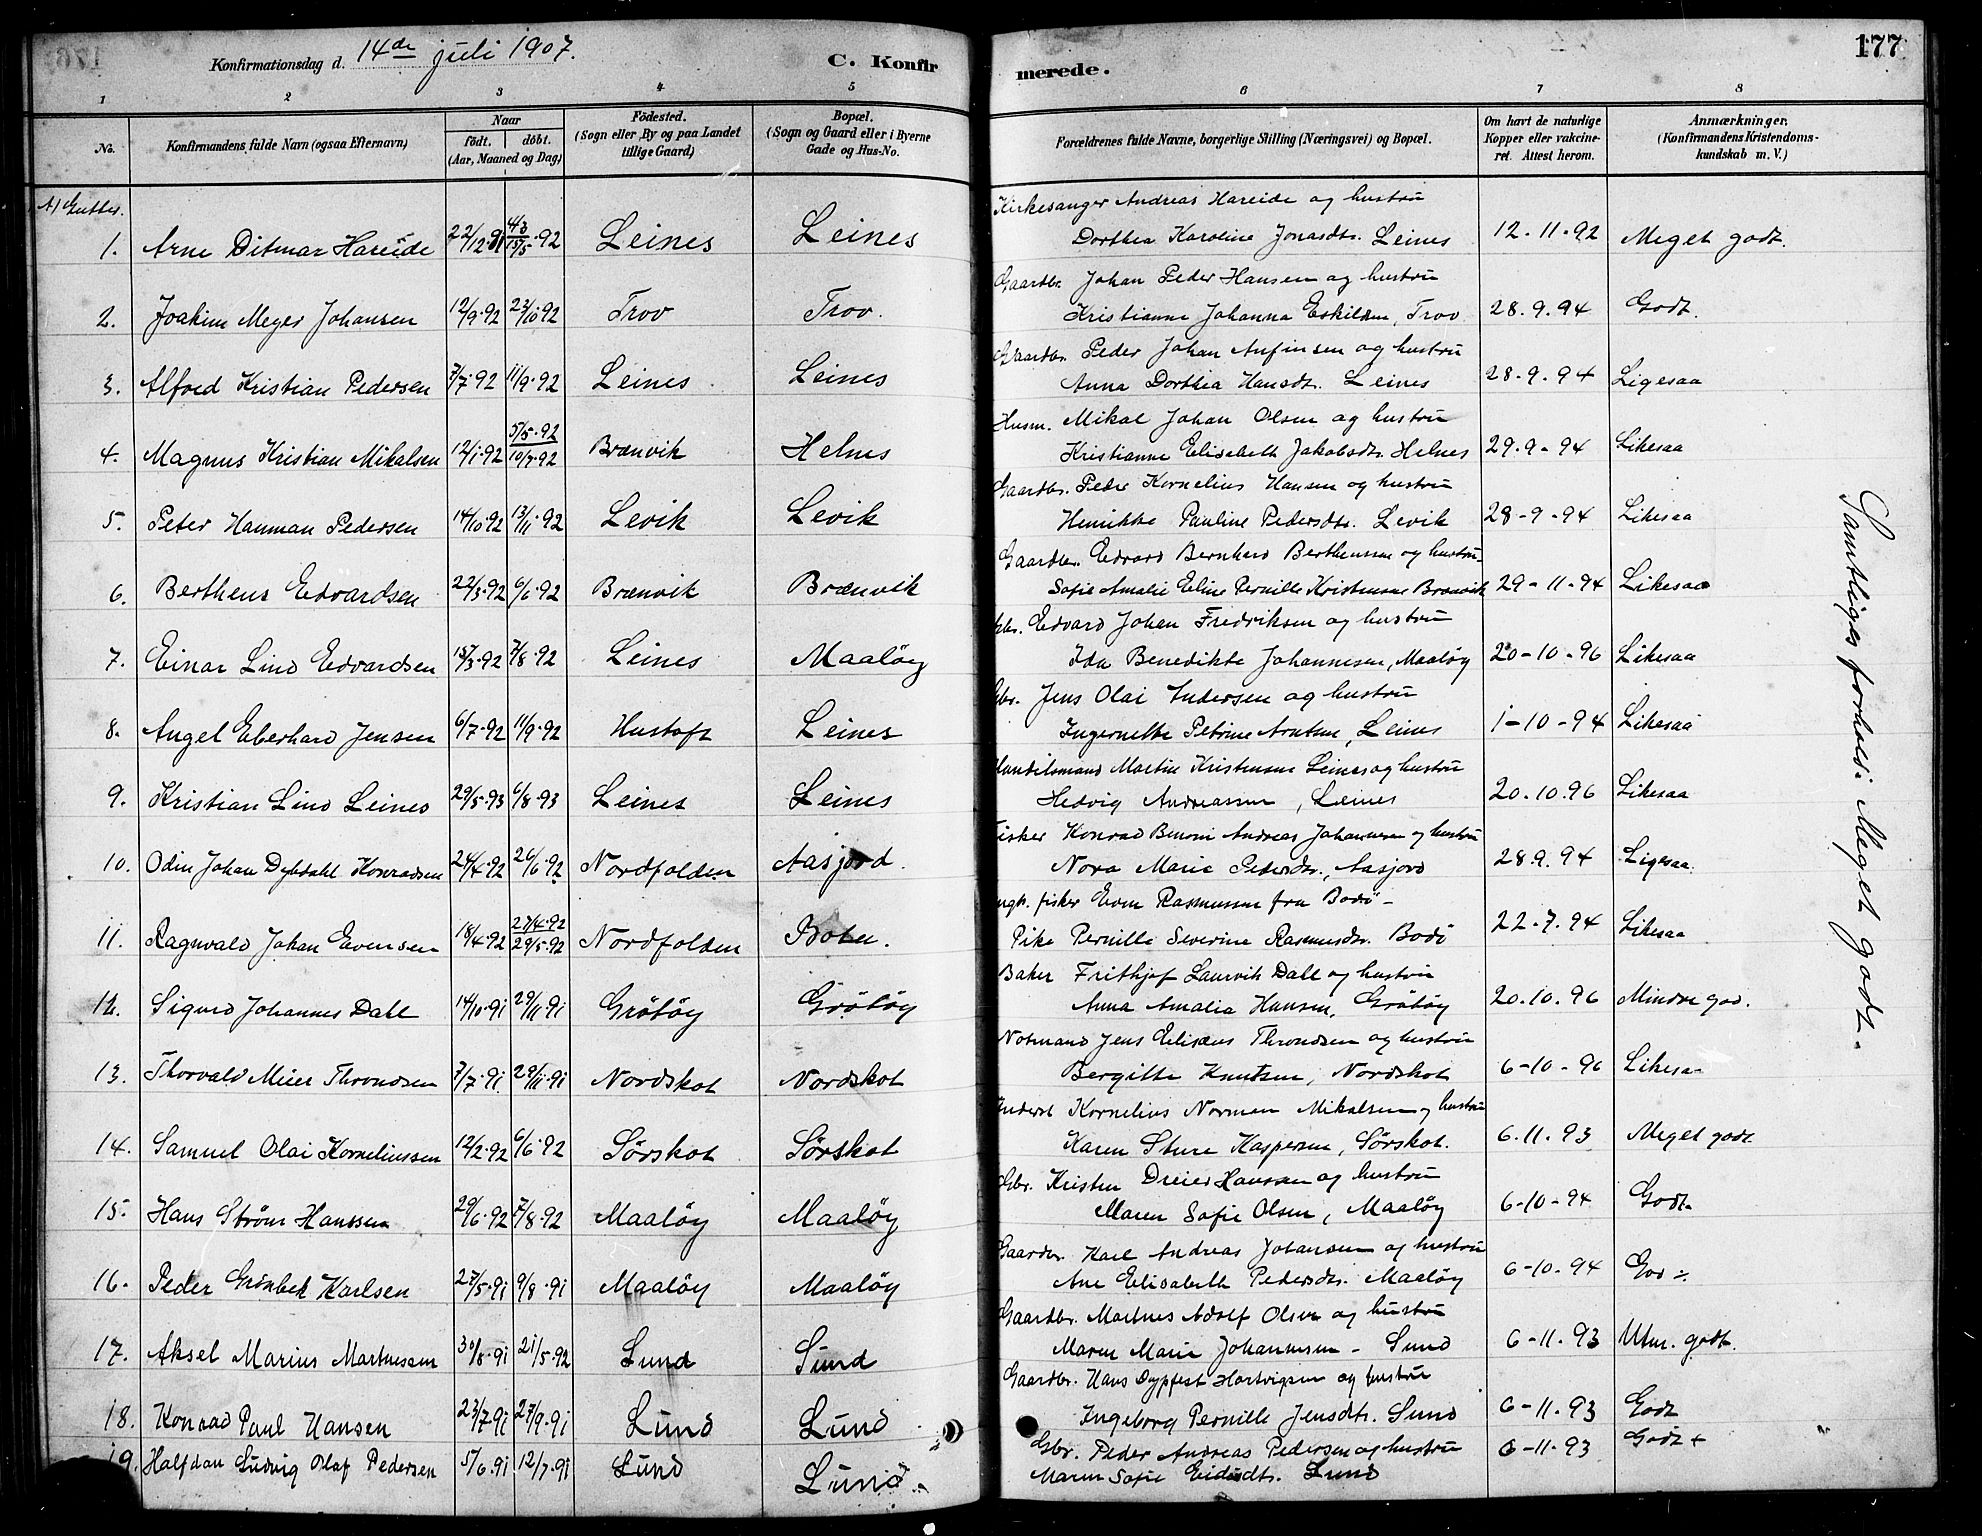 Konfirmationsdag d. 14de juli 1907.
C. Konfirmerede.
177
1 2 3 4 5 6 7 8
No.
Konfirmandens fulde Navn (ogsaa Efternavn)
Naar
født. døbt.
(Aar, Maaned og Dag)
Födested.
(Sogn eller By og paa Landet
tillige Gaard)
Bopæl.
(Sogn og Gaard eller i Byerne
Gade og Hus-No.
Forældrenes fulde Navne, borgerlige Stilling (Næringsvei) og Bopæl.
Om havt de naturlige
Kopper eller vakcine-
ret. Attest herom.
Anmærkninger.
(Konfirmandens Kristendoms-
kundskab m. V.)
A) Gutter.
Kirkesanger Andreas Hareide og hustru
1. Arne Ditmar Hareide 22/12.91 4/3 15/5.92 Leines Leines Dorthea Karoline Jonasdtr. Leines 12.11-92 Meget godt.
Gaardbr. Johan Peder Hansen og hustru
2. Joakim Meyer Johansen 12/9.92 23/10.92 Trov Trov. Kristianne Johanna Eskildsen, Trov 28.9.94 Godt.
Gaardbr. Peder Johan Anfinsen og hustru
3. Alfred Kristian Pedersen 7/7.92 11/9.92 Leines Leines Anna Dorthea Hansdtr. Leines 28-9.94 Ligesaa
Husm. Mikal Johan Olsen og hustru
4. Magnus Kristian Mikalsen 12/1.92 5/5.92 10/7.92 Brænvik Helnes Kristianne Elisabeth Jakobsdtr. Helnes 29.9-94 Likesaa
Gaardbr. Peder Kornelius Hansen og hustru
5. Peter Hanman Pedersen 14/10.92 13/11.92 Levik Levik Henrikke Pauline Pedersdtr. Levik 28-9-94 Likesaa
Gaardbr. Edvard Bernhard Berthenssen og hustru
6. Berthens Edvardsen 22/3.92 6/6.92 Brænvik Brænvik Sofie Amalie Eline Pernille Kristensen Brænvik 29-11-94 Likesaa
Gbr. Edvard Johan Fredriksen og hustru
7. Einar Lind Edvardsen 15/3.92 7/8.92 Leines Maalöy Ida Benedikte Johannesen, Maalöy 20-10-96 Likesaa
Gbr. Jens Olai Andersen og hustru
8. Angel Eberhard Jensen 6/7.92 11/9.92 Hustoft Leines Ingernette Petrine Arntsen, Leines 1-10-94 Likesaa
Handelsmand Martin Kristensen Leines og hustru
9. Kristian Lind Leines 29/5.93 6/8.93 Leines Leines Hedvig Andreassen, Leines 20.10.96 Likesaa
Fisker Konrad Benoni Andreas Johannesen og hustru
10. Odin Johan Dybdahl Konradsen 24/4.92 26/6.92 Nordfolden Aasjord. Nora Marie Pedersdtr., Aasjord 28.9.94 Ligesaa
ungk. fisker Even Rasmussen fra Bodö-
11. Ragnvald Johan Evensen 18/4.92 27/4.92 29/5.92 Nordfolden Boten. Pike Pernille Severine Rasmusdtr. Bodö 22-7.94 Likesaa
Baker Frithjof Laurvik Dahl og hustru
12. Sigurd Johannes Dahl 14/10.91 29/11.91 Grötöy Grötöy Anna Amalia Hansen, Grötöy 20.10.96 Mindre god.
Notmand Jens Elisæus Throndsen og hustru
13. Thorvald Meier Throndsen 7/7.91 29/11.91 Nordskot Nordskot Bergitte Knutsen, Nordskot 6-10-96 Likesa-
Inderst Kornelius Norman Mikalsen og hustru
14. Samuel Olai Korneliussen 12/2.92 6/6.92 Sörskot Sörskot Karen Sture Kaspersen, Sörskot. 6.11.93 Meget godt
Gbr. Kristen Dreier Hanssen og hustru
15. Hans Ström Hanssen 29/6.92 7/8.92 Maalöy Maalöy Maren Sofie Olsen, Maalöy 6-10-94 Godt.
Gaardbr. Karl Andreas Johansen og hustru
16. Peder Grönbek Karlsen 27/5.91 9/8.91 Maalöy Maalöy Ane Elisabeth Pedersdtr. Maalöy 6-10.94 God ÷
Gaardbr. Martnes Adolf Olsen og hustru
17. Aksel Marius Martnessen 30/8.91 21/5.92 Lund Sund Maren Marie Johannesen - Sund 6-11.93 Utm. godt.
Gaardbr. Hans Dypfest Hartvigsen og hustru
18. Konrad Paul Hansen 23/7.91 27/9.91 Lund Lund Ingeborg Pernille Jensdtr. Sund 6-11.93 Godt
Gbr. Peder Andreas Pedersen og hustru
19. Halfdan Ludvig Olaf Pedersen 5/6.91 12/7.91 Lund Lund. Maren Sofie Eidisdtr. Lund 6-11-93 Godt +
Samtliges forhold: Meget godt.